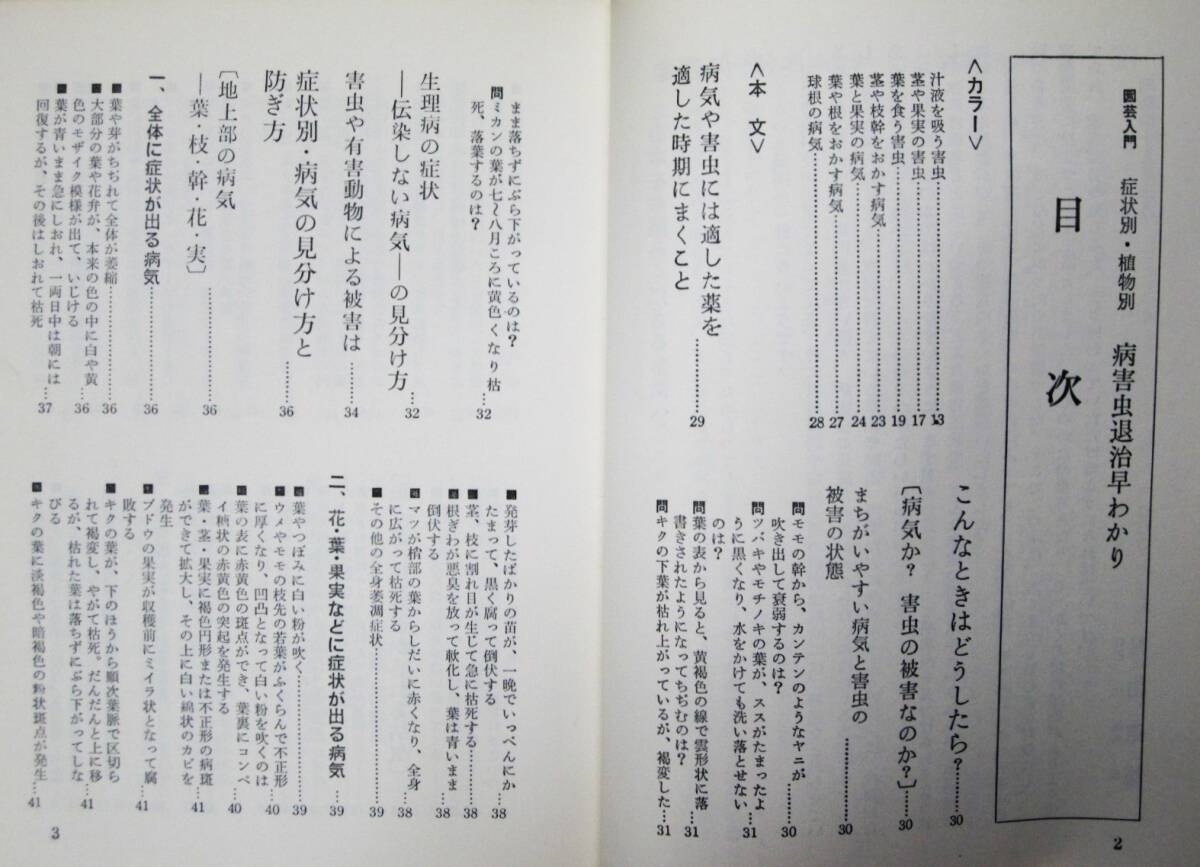 園芸入門 症状別・植物別 病害虫退治早わかり
目次
〈カラー〉
汁液を吸う害虫……13
茎や果実の害虫……17
葉を食う害虫……19
茎や枝幹をおかす病気……23
葉と果実の病気……24
葉や根をおかす病気……27
球根の病気……28
〈本 文〉
病気や害虫には適した薬を
適した時期にまくこと……29
こんなときはどうしたら?……30
〔病気か? 害虫の被害なのか?〕……30
まちがいやすい病気と害虫の
被害の状態……30
問 モモの幹から、カンテンのようなヤニが
吹き出して衰弱するのは?……30
問 ツバキやモチノキの葉が、ススがたまったよ
うに黒くなり、水をかけても洗い落とせない
のは?……31
問 葉の表から見ると、黄褐色の線で雲形状に落
書きされたようになってちぢむのは?……31
問 キクの下葉が枯れ上がっているが、褐変した……31
2
まま落ちずにぶら下がっているのは?
問 ミカンの葉が七〜八月ころに黄色くなり枯
死、落葉するのは?……32
生理病の症状
―伝染しない病気―の見分け方……32
害虫や有害動物による被害は……34
症状別・病気の見分け方と
防ぎ方……36
〔地上部の病気
―葉・枝・幹・花・実〕……36
一、全体に症状が出る病気……36
■葉や芽がちぢれて全体が萎縮……36
■大部分の葉や花弁が、本来の色の中に白や黄
色のモザイク模様が出て、いじける……36
■葉が青いまま急にしおれ、一両日中は朝には
回復するが、その後はしおれて枯死……37
■発芽したばかりの苗が、一晩でいっぺんにか
たまって、黒く腐って倒伏する……38
■茎、枝に割れ目が生じて急に枯死する……38
■根ぎわが悪臭を放って軟化し、葉は青いまま
倒伏する……38
■マツが梢部の葉からしだいに赤くなり、全身
に広がって枯死する……38
■その他の全身萎凋症状……39
二、花・葉・果実などに症状が出る病気……39
■葉やつぼみに白い粉が吹く……39
■ウメやモモの枝先の若葉がふくらんで不正形
に厚くなり、凹凸となって白い粉を吹くのは……40
■葉の表に赤黄色の斑点ができ、葉裏にコンペ
イ糖状の赤黄色の突起を発生する……40
■葉・茎・果実に褐色円形または不正形の病斑
ができて拡大し、その上に白い綿状のカビを
発生……41
■ブドウの果実が収穫前にミイラ状となって腐
敗する……41
■キクの葉が、下のほうから順次葉脈で区切ら
れて褐変し、やがて枯死。だんだんと上に移
るが、枯れた葉は落ちずにぶら下がってしな
びる……41
■キクの葉に淡褐色や暗褐色の粉状斑点が発生……41
3